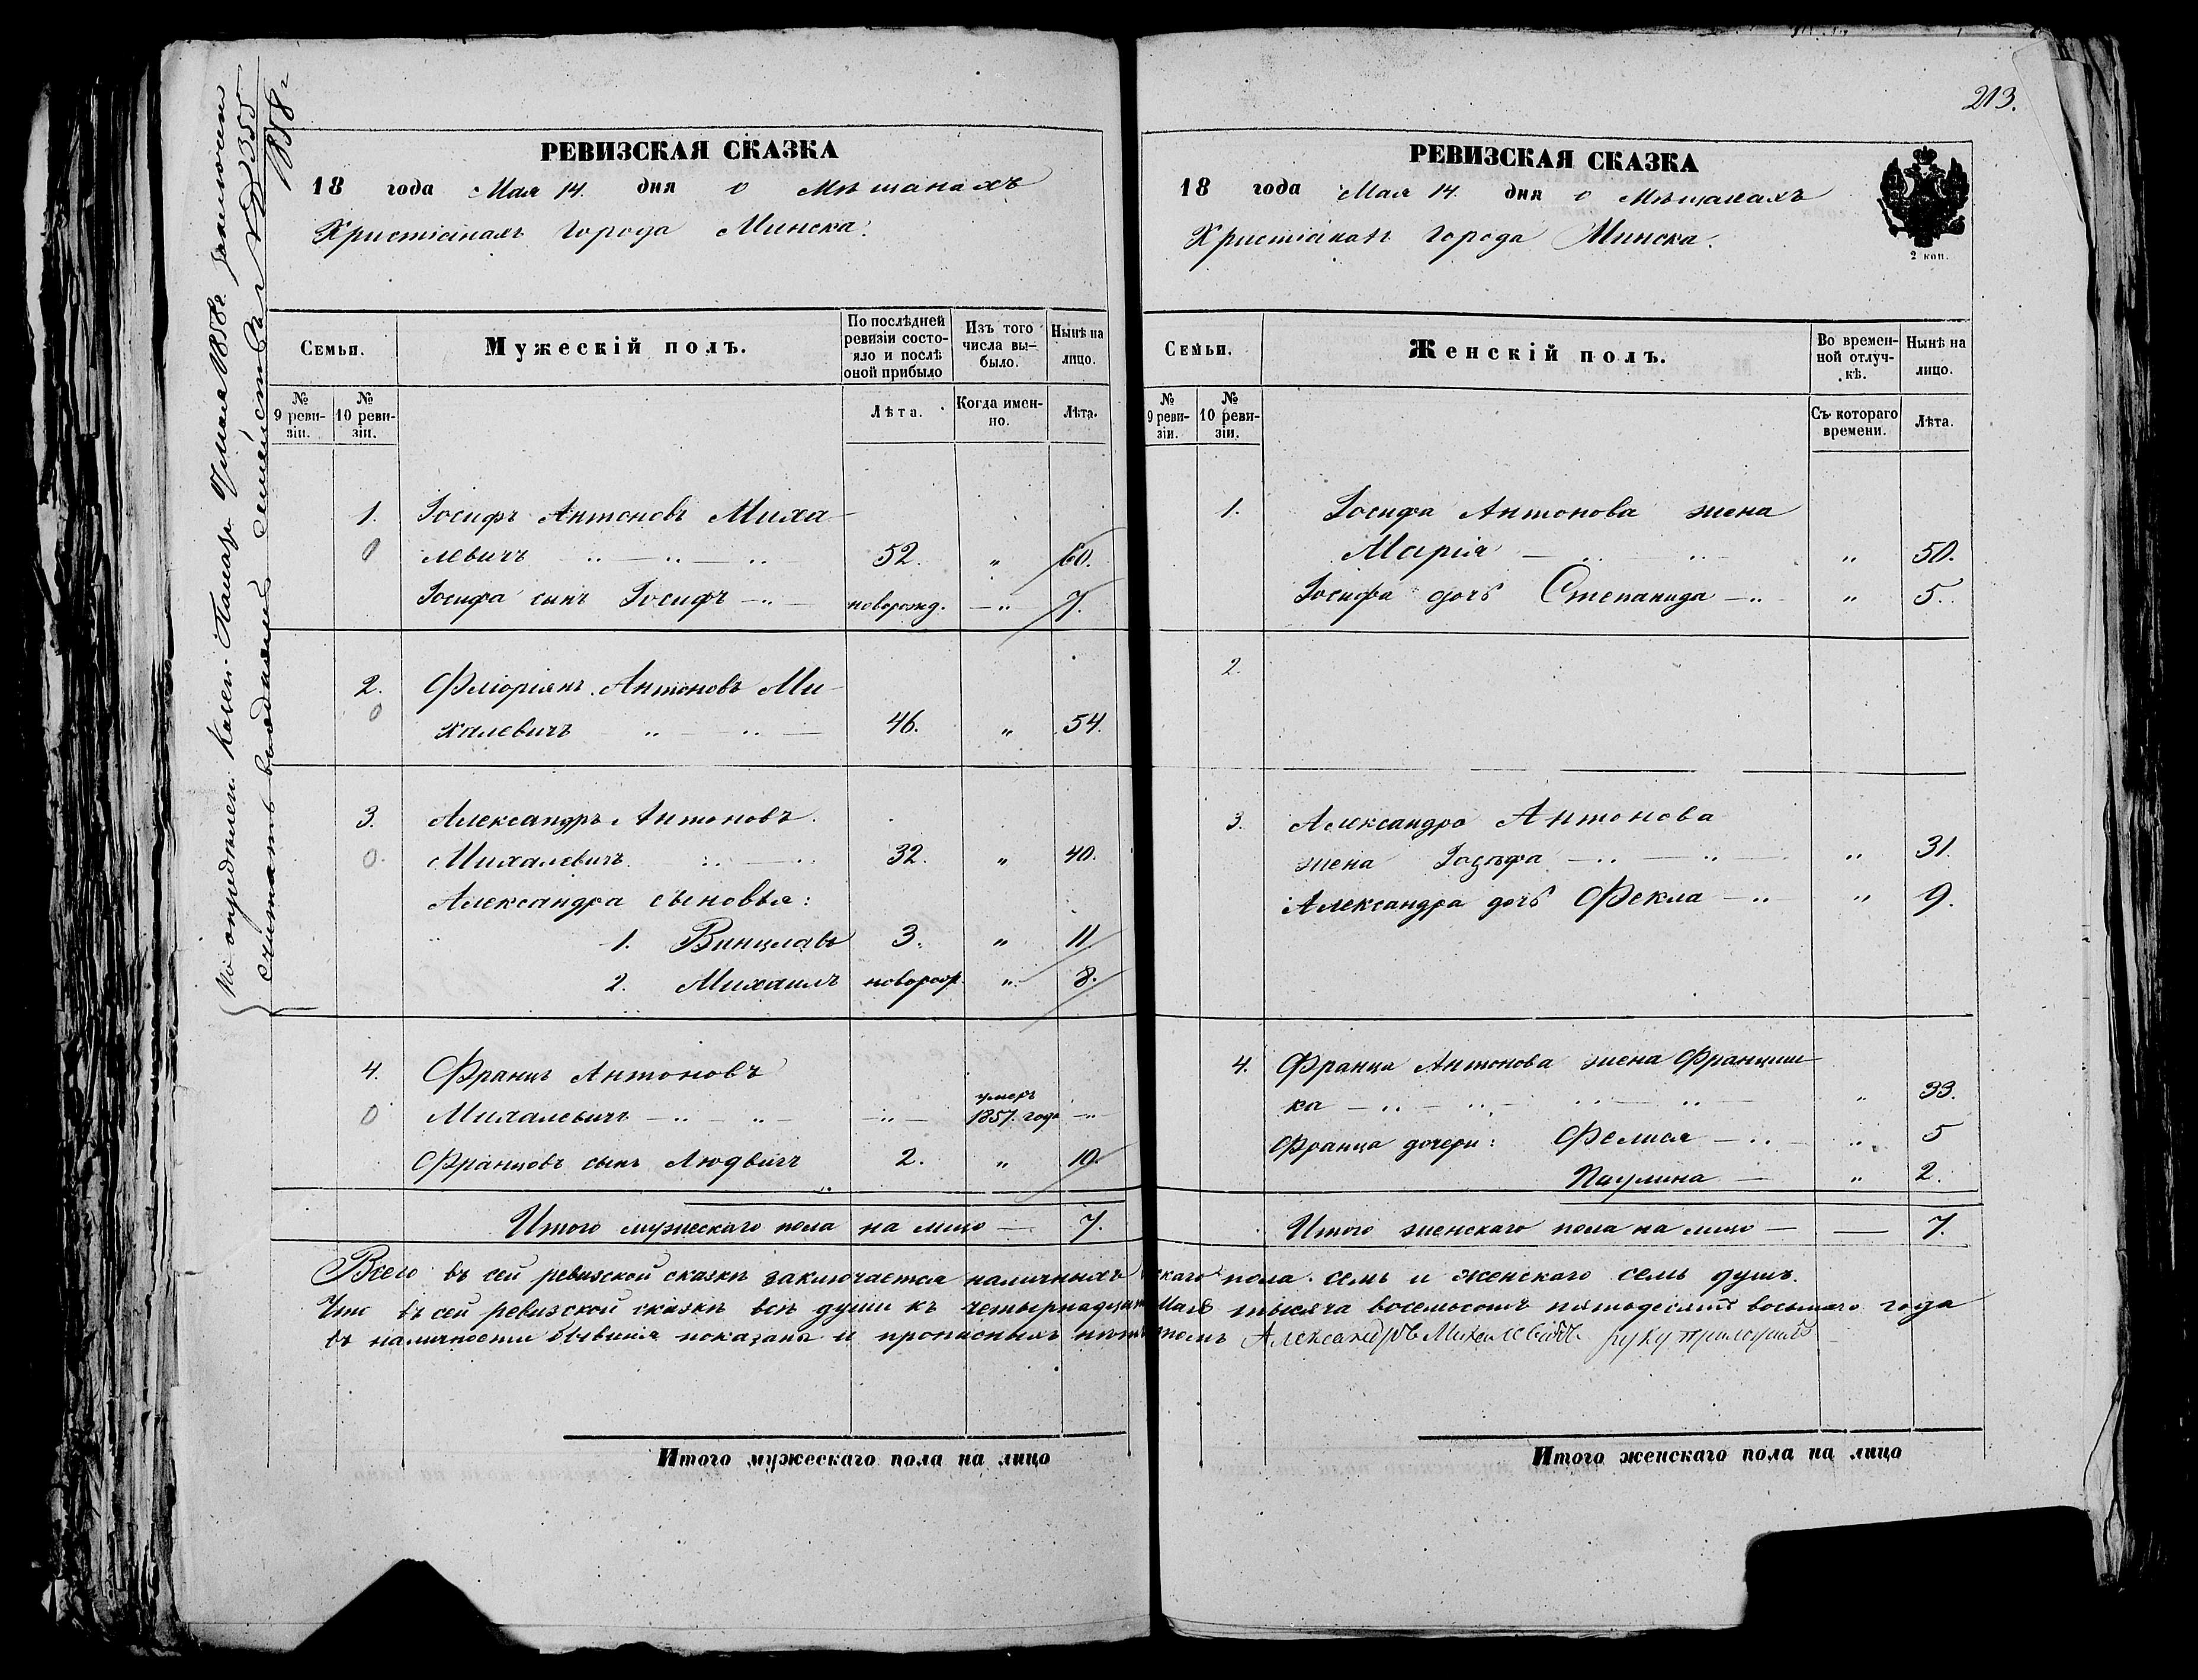 213.
По опредѣлен. Казен. Палат. 9 мая 1858г. заключен
считать выданныя семейства № 355
1858 г
РЕВИЗСКАЯ СКАЗКА
18 года Мая 14. дня о Мѣщанахъ
Христіанахъ города Минска.
Семьи.
Мужескій полъ.
По послѣдней ревизіи состо-яло и послѣ оной прибыло
Изъ того числа вы-было.
Нынѣ на лицо.
№ 9 реви-зіи.
№ 10 реви-зіи.
Лѣта.
Когда имен-но.
Лѣта.
1. Іосифъ Антоновъ Миха-
0 левичъ 52. " 60.
Іосифа сынъ Іосифъ новорожд. " 7.
2. Фліоріянъ Антоновъ Ми-
0 халевичъ 46. " 54.
3. Александръ Антоновъ
0. Михалевичъ 32. " 40.
Александра сыновья:
1. Винцлавъ 3. " 11
2. Михаилъ новорож. " 8.
4. Францъ Антоновъ
0 Михалевичъ " умеръ 1857. года "
Францовъ сынъ Людвигъ 2. " 10.
Итого мужескаго пола на лицо 7.
РЕВИЗСКАЯ СКАЗКА
18 года Мая 14. дня о Мѣщанахъ
Христіанахъ города Минска.
2 коп.
Семьи.
Женскій полъ.
Во времен-ной отлуч-кѣ.
Нынѣ на лицо.
№ 9 реви-зіи.
№ 10 реви-зіи.
Съ котораго времени.
Лѣта.
1. Іосифа Антонова жена
Марія " 50.
Іосифа дочь Степанида " 5.
2.
3. Александра Антонова
жена Іозефа " 31.
Александра дочь Фекла " 9.
4. Франца Антонова жена Францишка-
ка " 33.
Франца дочери: Фелися " 5
Паулина " 2.
Итого женскаго пола на лицо 7.
Всего въ сей ревизской сказкѣ заключается наличныхъ скаго пола семь и женскаго семь душъ.
Что въ сей ревизской сказкѣ всѣ души къ четырнадцат Мая тысяча восемьсотъ пятьдесятъ восьмаго года
въ наличности бывшія показаны и прописныхъ нѣт томъ Александръ Михалевичъ руку приложилъ
Итого мужескаго пола на лицо
Итого женскаго пола на лицо